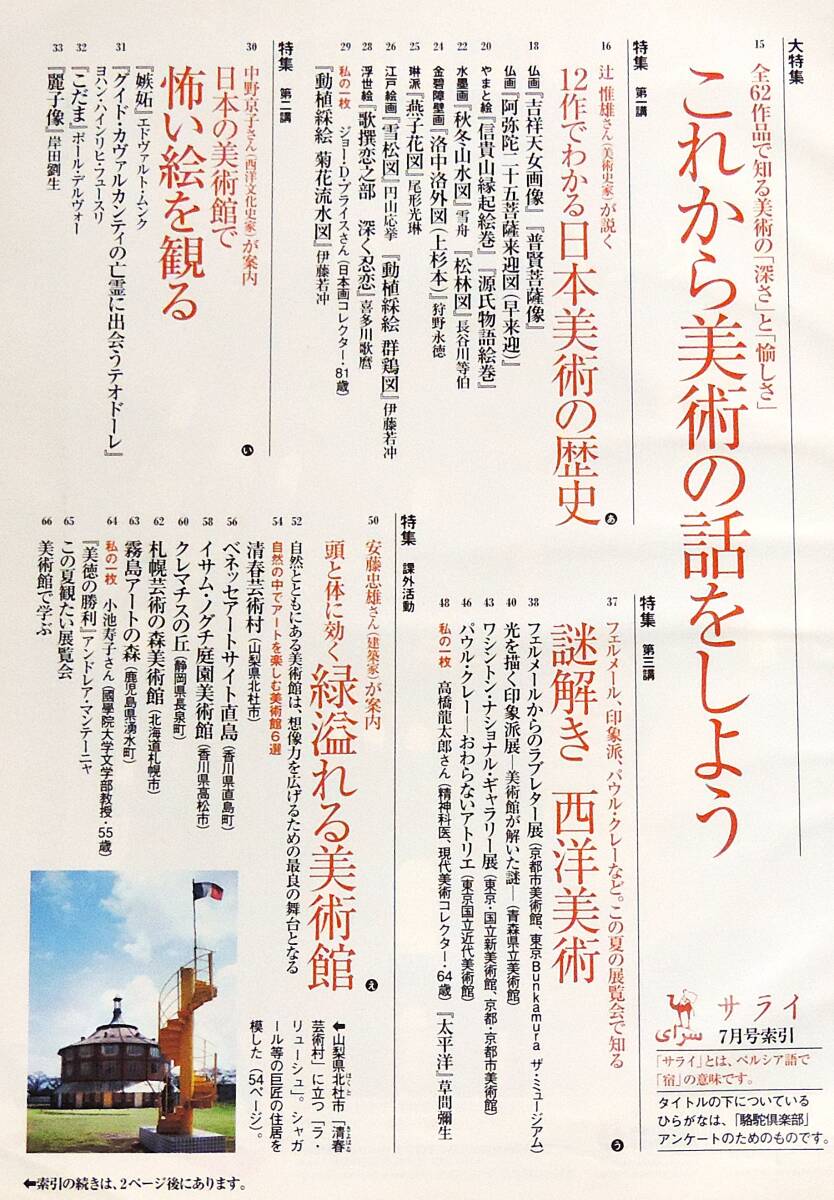 大特集
15 全62作品で知る美術の「深さ」と「愉しさ」
これから美術の話をしよう
特集 第一講
16 辻 惟雄さん（美術史家）が説く
12作でわかる日本美術の歴史 あ
18 仏画『吉祥天女画像』『普賢菩薩像』
仏画『阿弥陀二十五菩薩来迎図（早来迎）』
20 やまと絵『信貴山縁起絵巻』『源氏物語絵巻』
22 水墨画『秋冬山水図』雪舟 『松林図』長谷川等伯
24 金碧障壁画『洛中洛外図（上杉本）』狩野永徳
25 琳派『燕子花図』尾形光琳
26 江戸絵画『雪松図』円山応挙 『動植綵絵 群鶏図』伊藤若冲
28 浮世絵『歌撰恋之部 深く忍恋』喜多川歌麿
29 私の一枚 ジョー・D・プライスさん（日本画コレクター・81歳）
『動植綵絵 菊花流水図』伊藤若冲
特集 第二講
30 中野京子さん（西洋文化史家）が案内
日本の美術館で
怖い絵を観る い
『嫉妬』エドヴァルト・ムンク
31 『グイド・カヴァルカンティの亡霊に出会うテオドーレ』
ヨハン・ハインリヒ・フュースリ
32 『こだま』ポール・デルヴォー
33 『麗子像』岸田劉生
特集 第三講
37 フェルメール、印象派、パウル・クレーなど。この夏の展覧会で知る
謎解き 西洋美術 う
38 フェルメールからのラブレター展（京都市美術館、東京Bunkamura ザ・ミュージアム）
40 光を描く印象派展―美術館が解いた謎―（青森県立美術館）
43 ワシントン・ナショナル・ギャラリー展（東京・国立新美術館、京都・京都市美術館）
46 パウル・クレー―おわらないアトリエ（東京国立近代美術館）
48 私の一枚 高橋龍太郎さん（精神科医、現代美術コレクター・64歳）『太平洋』草間彌生
特集 課外活動
50 安藤忠雄さん（建築家）が案内
頭と体に効く緑溢れる美術館 え
52 自然とともにある美術館は、想像力を広げるための最良の舞台となる
54 自然の中でアートを楽しむ美術館6選
清春芸術村（山梨県北杜市）
56 ベネッセアートサイト直島（香川県直島町）
58 イサム・ノグチ庭園美術館（香川県高松市）
60 クレマチスの丘（静岡県長泉町）
62 札幌芸術の森美術館（北海道札幌市）
63 霧島アートの森（鹿児島県湧水町）
64 私の一枚 小池寿子さん（國學院大学文学部教授・55歳）
『美徳の勝利』アンドレア・マンテーニャ
65 この夏観たい展覧会
66 美術館で学ぶ
⬅山梨県北杜市「清春
芸術村」に立つ「ラ・
リューシュ」。シャガ
ール等の巨匠の住居を
模した（54ページ）。
ほくと
きよはる
サライ
سرای
7月号索引
「サライ」とは、ペルシア語で
「宿」の意味です。
タイトルの下についている
ひらがなは、「駱駝倶楽部」
アンケートのためのものです。
⬅索引の続きは、2ページ後にあります。